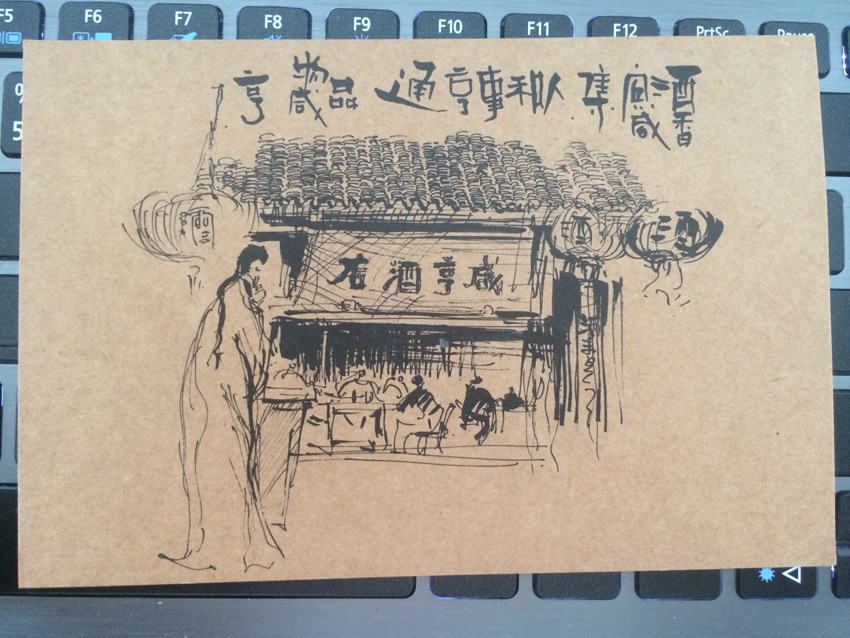 F5 F6 F7 F8 F9 F10 F11 F12 PrtSc Pause
%
5
酒香賓咸集 人和事亨通 品物咸亨
酒
酒
咸亨酒店